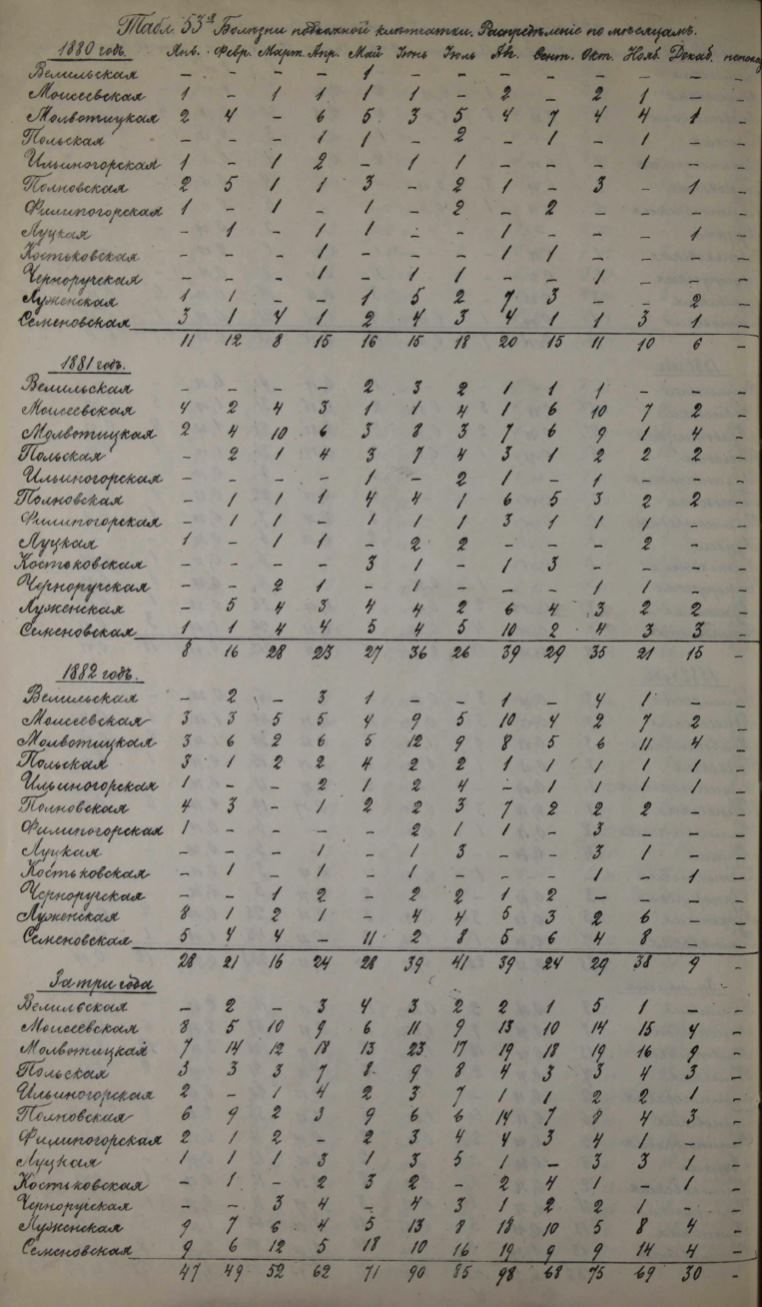 Табл. 53а Болѣзни подкожной клѣтчатки. Распредѣленіе по мѣсяцамъ.
1880 годъ. Янв. Февр. Март. Апр. Май Іюнь Іюль Авг. Сент. Окт. Нояб. Декаб.
Велильская – – – – 1 – – – – – – – –
Моисеевская 1 – 1 1 1 1 – 2 – 2 1 – –
Молвотицкая 2 4 – 6 5 3 5 4 7 4 4 1 –
Польская – – – 1 1 – 2 – 1 – 1 – –
Ильиногорская 1 – 1 2 – 1 1 – – – 1 – –
Полновская 2 5 1 1 3 – 2 1 – 3 – 1 –
Филипогорская 1 – 1 – 1 – 2 – 2 – – – –
Луцкая – 1 – 1 1 – – 1 – – – 1 –
Костьковская – – – 1 – – – 1 1 – – – –
Черноручская – – – 1 – 1 1 – – 1 – – –
Луженская 1 1 – – 1 5 2 7 3 – – 2 –
Семеновская 3 1 4 1 2 4 3 4 1 1 3 1 –
11 12 8 15 16 15 18 20 15 11 10 6 –
1881 годъ.
Велильская – – – – 2 3 2 1 1 1 – – –
Моисеевская 4 2 4 3 1 1 4 1 6 10 7 2 –
Молвотицкая 2 4 10 6 3 8 3 7 6 9 1 4 –
Польская – 2 1 4 3 7 4 3 1 2 2 2 –
Ильиногорская – – – – 1 – 2 1 – 1 – – –
Полновская – 1 1 1 4 4 1 6 5 3 2 2 –
Филипогорская – 1 1 – 1 1 1 3 1 1 1 – –
Луцкая 1 – 1 1 – 2 2 – – – 2 – –
Костьковская – – – – 3 1 – 1 3 – – – –
Черноручская – – 2 1 – 1 – – – 1 1 – –
Луженская – 5 4 3 4 4 2 6 4 3 2 2 –
Семеновская 1 1 4 4 5 4 5 10 2 4 3 3 –
8 16 28 23 27 36 26 39 29 35 21 15 –
1882 годъ.
Велильская – 2 – 3 1 – – 1 – 4 1 – –
Моисеевская 3 3 5 5 4 9 5 10 4 2 7 2 –
Молвотицкая 3 6 2 6 5 12 9 8 5 6 11 4 –
Польская 3 1 2 2 4 2 2 1 1 1 1 1 –
Ильиногорская 1 – – 2 1 2 4 – 1 1 1 1 –
Полновская 4 3 – 1 2 2 3 7 2 2 2 – –
Филипогорская 1 – – – – 2 1 1 – 3 – – –
Луцкая – – – 1 – 1 3 – – 3 1 – –
Костьковская – 1 – 1 – 1 – – – 1 – 1 –
Черноручская – – 1 2 – 2 2 1 2 – – – –
Луженская 8 1 2 1 – 4 4 5 3 2 6 – –
Семеновская 5 4 4 – 11 2 8 5 6 4 8 – –
28 21 16 24 28 39 41 39 24 29 38 9 –
За три года
Велильская – 2 – 3 4 3 2 2 1 5 1 – –
Моисеевская 8 5 10 9 6 11 9 13 10 14 15 4 –
Молвотицкая 7 14 12 18 13 23 17 19 18 19 16 9 –
Польская 3 3 3 7 8 9 8 4 3 3 4 3 –
Ильиногорская 2 – 1 4 2 3 7 1 1 2 2 1 –
Полновская 6 9 2 3 9 6 6 14 7 8 4 3 –
Филипогорская 2 1 2 – 2 3 4 4 3 4 1 – –
Луцкая 1 1 1 3 1 3 5 1 – 3 3 1 –
Костьковская – 1 – 2 3 2 – 2 4 1 – 1 –
Черноручская – – 3 4 – 4 3 1 2 2 1 – –
Луженская 9 7 6 4 5 13 8 18 10 5 8 4 –
Семеновская 9 6 12 5 18 10 16 19 9 9 14 4 –
47 49 52 62 71 90 85 98 68 75 69 30 –